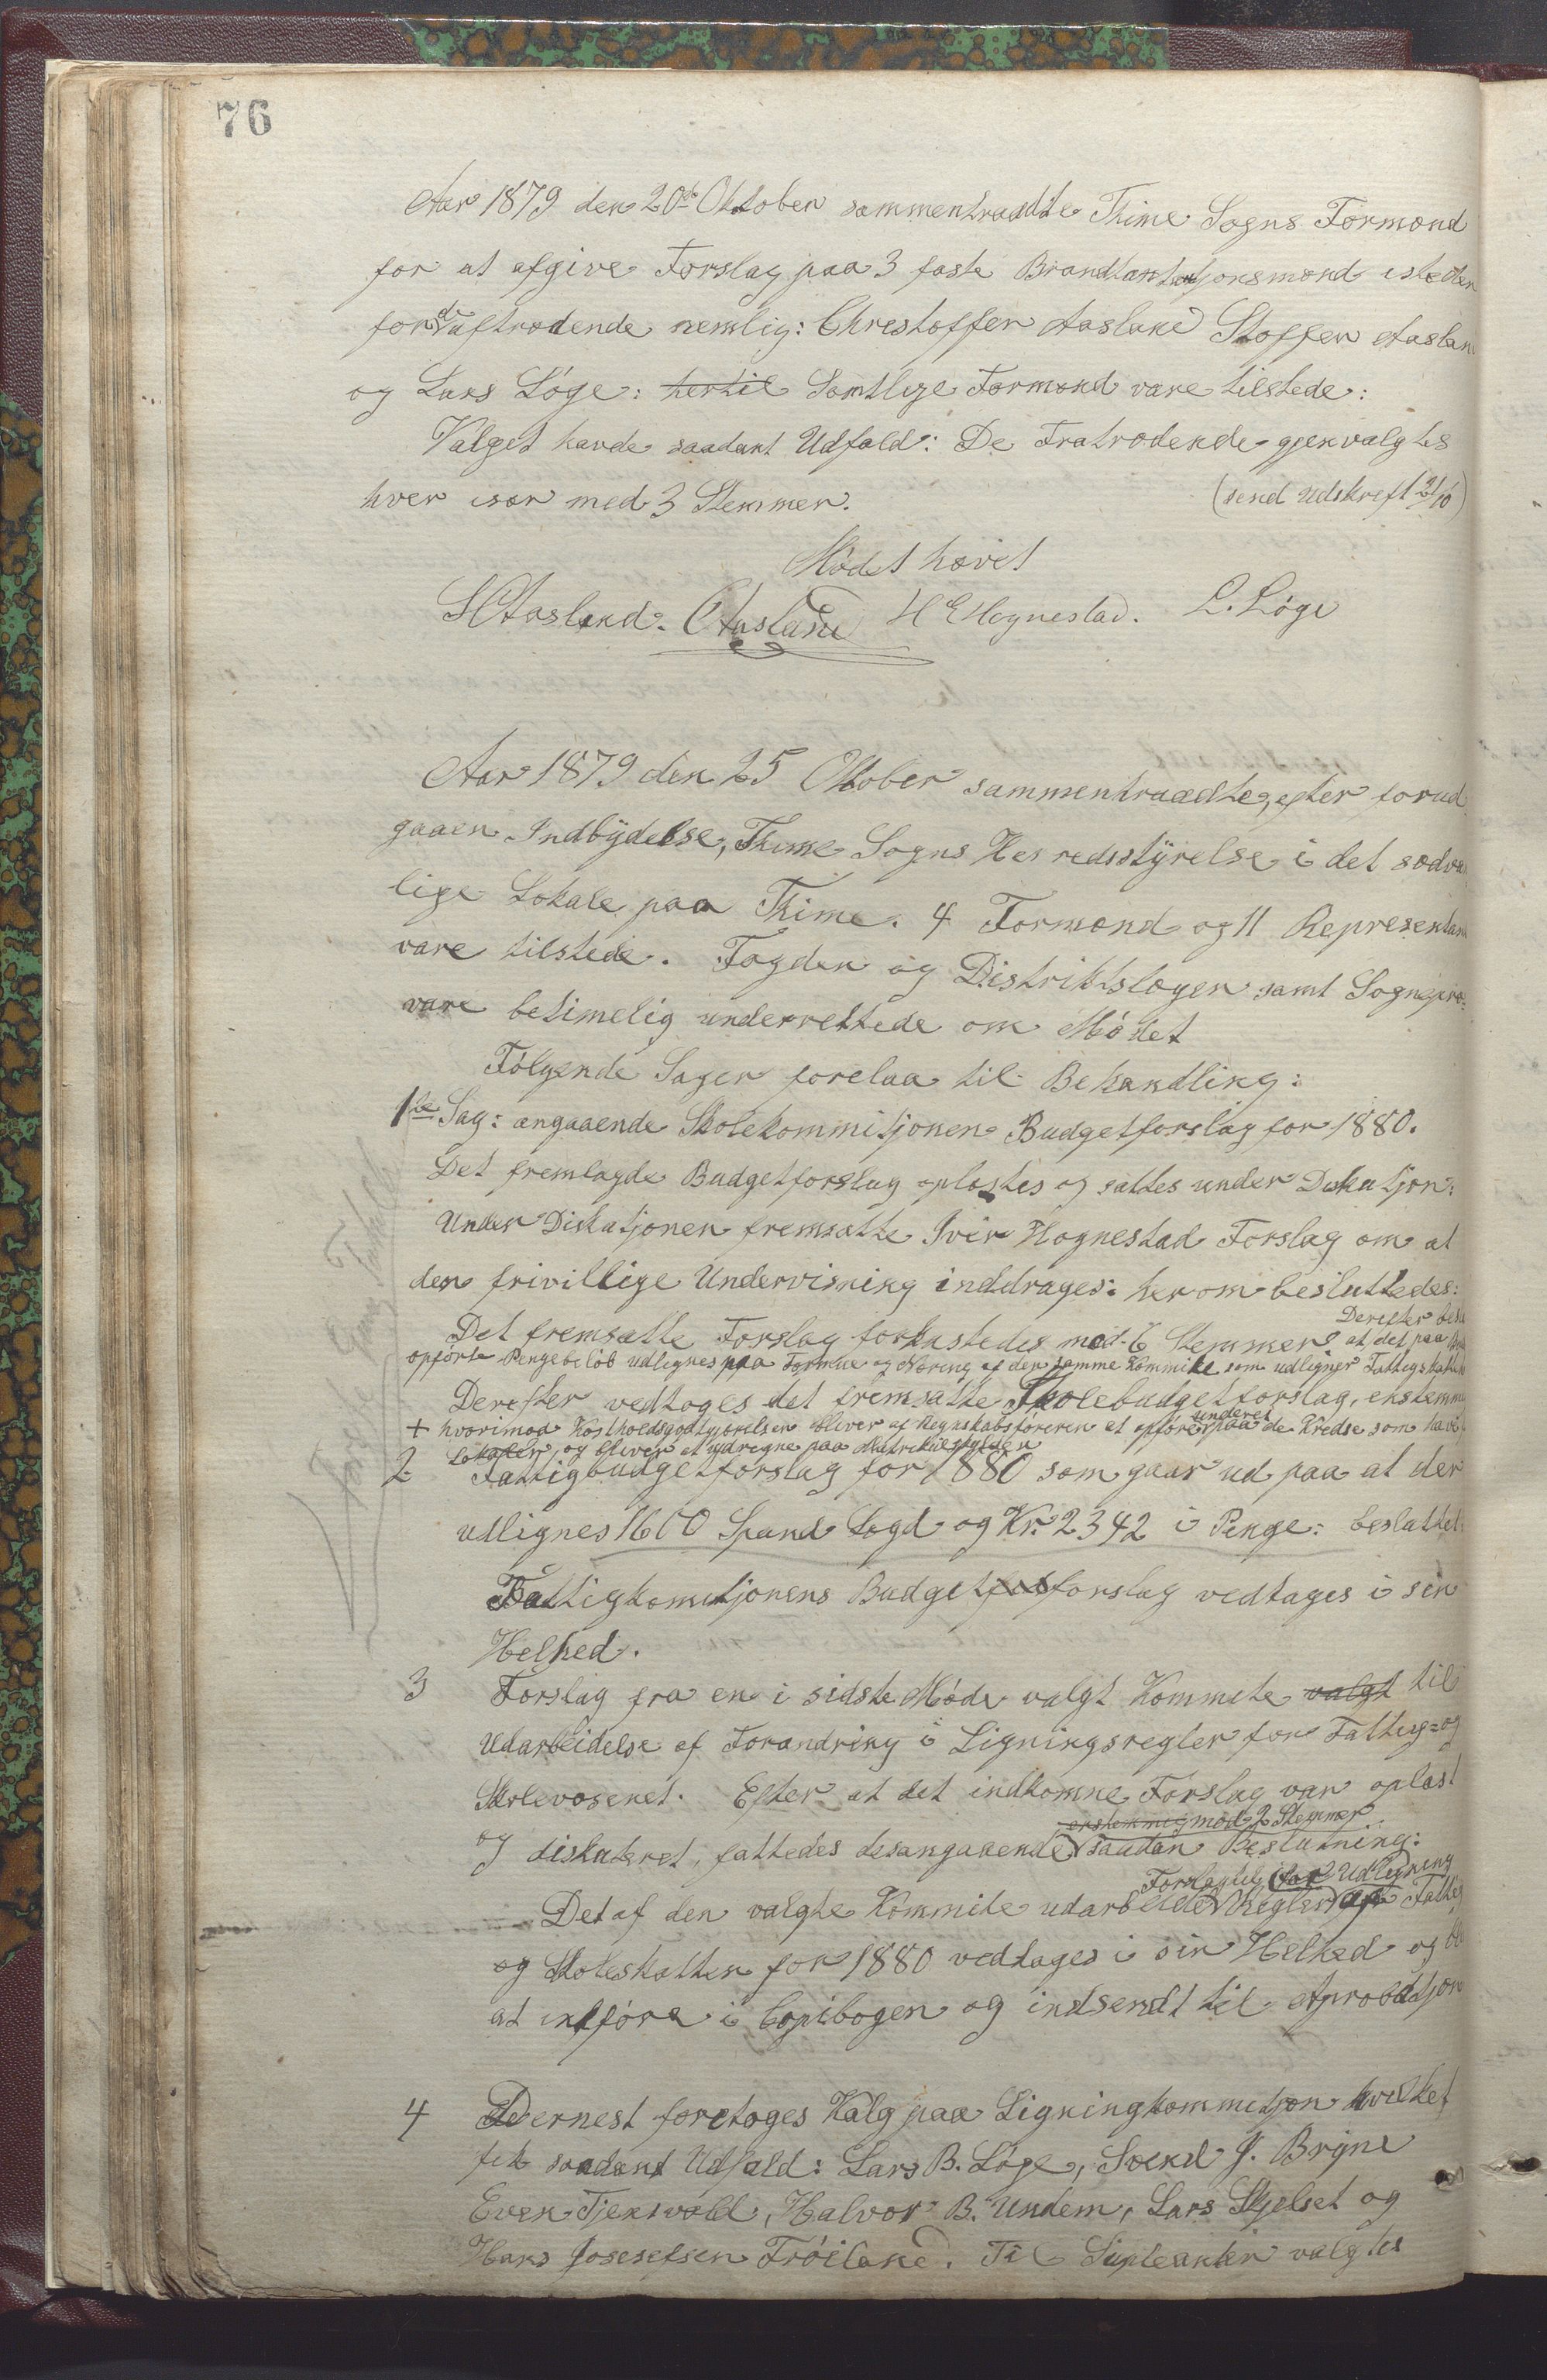 76
Aar 1879 den 20de Oktober sammentraadte Thime Sogns Formænd
for at afgive Forslag paa 3 faste Brandtaxtasjonsmænd isteden
for de aftrædende nemlig: Chrestoffer Aasland Stoffer Aaslan
og Lars Löge: hertil Samtlige Formænd vare tilstede:
Valget havde saadant Udfald: De Fratrædende gjenvalgtes
hver især med 3 Stemmer. (send Udskreft 21/10)
Mödet hævet
S Aasland. C Aasland H E Hognestad. L. Löge
Aar 1879 den 25 Oktober sammentraadte, efter forud
gaaen Indbÿdelse, Thime Sogns Herredsstÿrelse i det sædvan
lige Lokale paa Thime. 4 Formænd og 11 Representan
vare tilstede. Fogden og Distriktslægen samt Sognepræ
vare betimelig underrettede om Mödet
Fölgende Sager forelaa til Behandling:
1ste Sag: angaaende Skolekommitjonen Budgetforslag for 1880.
Det fremlagde Budgetforslag oplæstes og sattes under Diskutjon:
Under Diskutjonen fremsatte Iver Hognestad Forslag om at
den frivillige Undervisning inddrages: herom besluttedes:
Det fremsatte Forslag forkastedes mod 6 Stemmer Derefter beslu
at det paa
opförte Pengebelöb udlignes paa Formue og Næring af den samme Kommite som udligner Fattigskatten
Derefter vedtoges det fremsatte Skolebudgetforslag, enstemmi
+ hvorimod Kostholdsgodtgjörelsen bliver af Regnskabsföreren at opföre underet paa de Kredse som have
Lokaler, og bliver at udregne paa Matrikulskylden
2 Fattigbudgetforslag for 1880 som gaar ud paa at der
udlignes 1600 Spand Lagd og Kr. 2342 i Penge: besluttet:
Fattigkomitjonens Budgetfosforslag vedtages i sin
Helhed.
3 Forslag fra en i sidste Möde valgt Kommite valgt til
Udarbeidelse af Forandring i Ligningsregler for Fattig= og
Skolevæsenet. Efter at det indkomne Forslag var oplæst
enstemmig mod 2 Stemmer
og diskuteret, fattedes desangaaende saadan Beslutning:
Forslag til for Udligning
Det af den valgte Kommite udarbeidede Regler af Fattig
og Skoleskatten for 1880 vedtages i sin Helhed og bli
at indföre i Copibogen og indsendt til Aprobatjon
4 Dernest foretoges Valg paa Ligningkommitjon hvilket
fik saadant Udfald: Lars B. Löge, Svend J. Brÿne
Even Tjensvold, Halvor B. Undem, Lars Skjelset og
Hans Josesefsen Fröiland. Til Supleanter valgtes